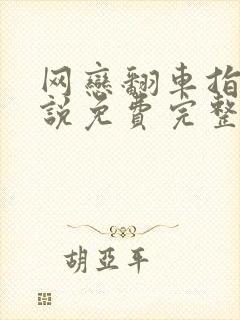 网戀翻車指
說免費完整
胡亞平